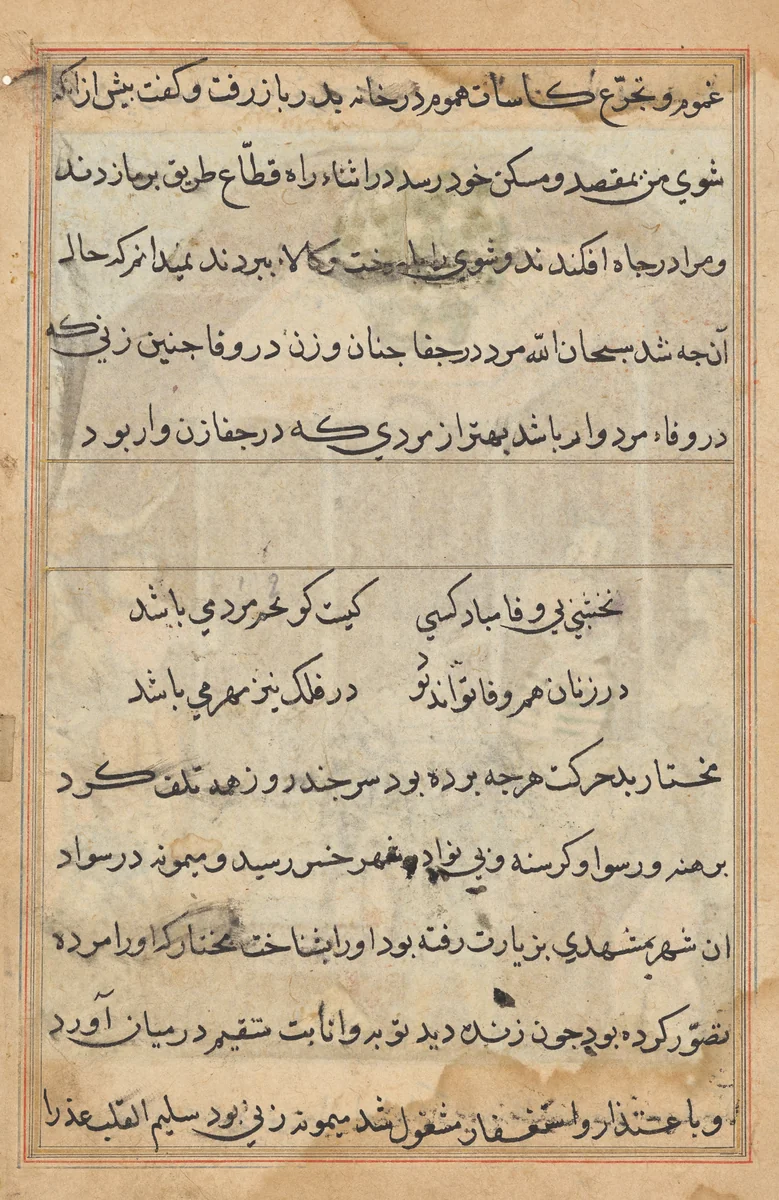 غموم و تجرّع کاسات هموم در خانه پدر باز رفت و کفت بیش از انکه
شوي من بمقصد و مسکن خود رسد در اثناء راه قطّاع طریق بر ما زدند
و مرا در جاه افکندند و شوي را با رخت و کالا ببردند نمیدانم که حال
آن جه شد سبحان الله مرد در جفا جنان و زن در وفا جنین زني که
در وفاء مردوار باشد بهتر از مردي که در جفا زن وار بود
نخشبي بي وفا مباد کسي کیت کو محرمردمي باشد
در زنان هم وفا تواند بود در فلک نیز مهر مي باشد
مختار بد حرکت هرجه برده بود سر جند روز همه تلف کرد
برهنه و رسوا و کرسنه و بي نوا در شهر خسر رسید و میمونه در سواد
ان شهر بمشهدي بزیارت رفته بود او را بشناخت مختار که او را مرده
تصوّر کرده بود جون زنده دید توبه و انابت ستقیم در میان آورد
و با عتذار و استغفار مشغول شد میمونه زني بود سلیم القلب عذر ا